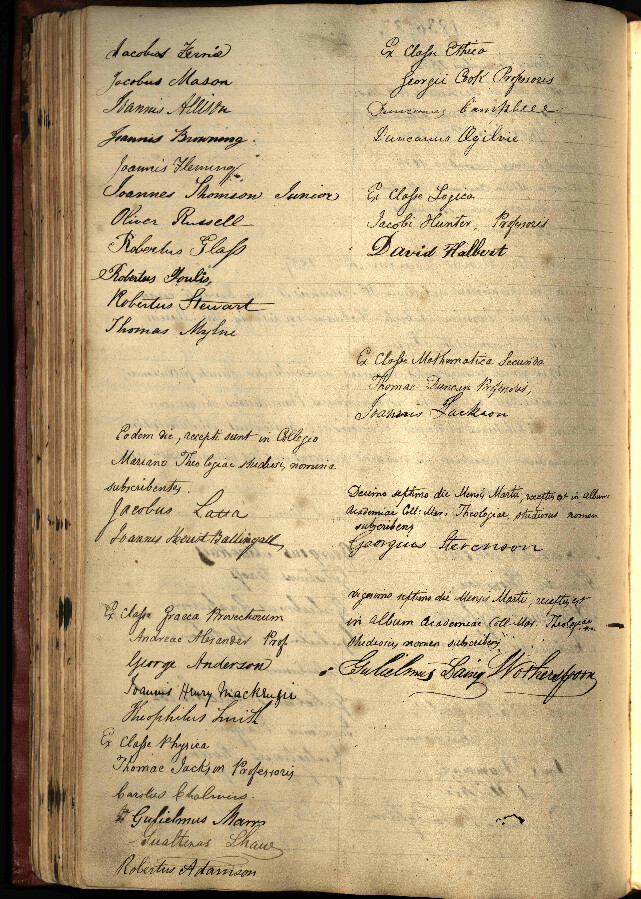 Jacobus Fernie
Jacobus Mason
Joannis Allison
Joannis Browning.
Joannis Fleming
Joannes Thomson Junior
Oliver Russell
Robertus Flass
Robertus Foulis,
Robertus Stewart
Thomas Mylne
Eodem die, recepti sunt in Collegio
Mariano Theologiae studiosi, nomina
subscribentes.
Jacobus
Joannes Heriot Ballingall
Ex Classe Graeca Provectiorum
Andreae Alexander Prof
George Anderson
Joannis Henry Mackenzie
Theophilus Smith
Ex Classe Physica
Thomae Jackson Professoris
Carolus Chalmers.
Gulielmus Marr
Gualterus Shaw
Robertus Adamson
Ex Classe Ethica
Georgii Cook Professoris
Duncanus Campbell
Duncanus Ogilvie
Ex Classe Logica
Jacobi Hunter, Professoris
David Halbert
Ex Classe Mathematica Secunda
Thomae Duncan Professoris,
Joannis Jackson
Decimo septimo die Mensis Martii, receptus est in album
Academiae Coll: Mar. Theologiae, studiosus nomen
subscribens
Georgius Stevenson
Vigesimo septimo die Mensis Martii, receptus est
in album Academiae Coll. Mar. Theologiae
studiosus, nomen subscribens
Gulielmus Laing Wotherspoon